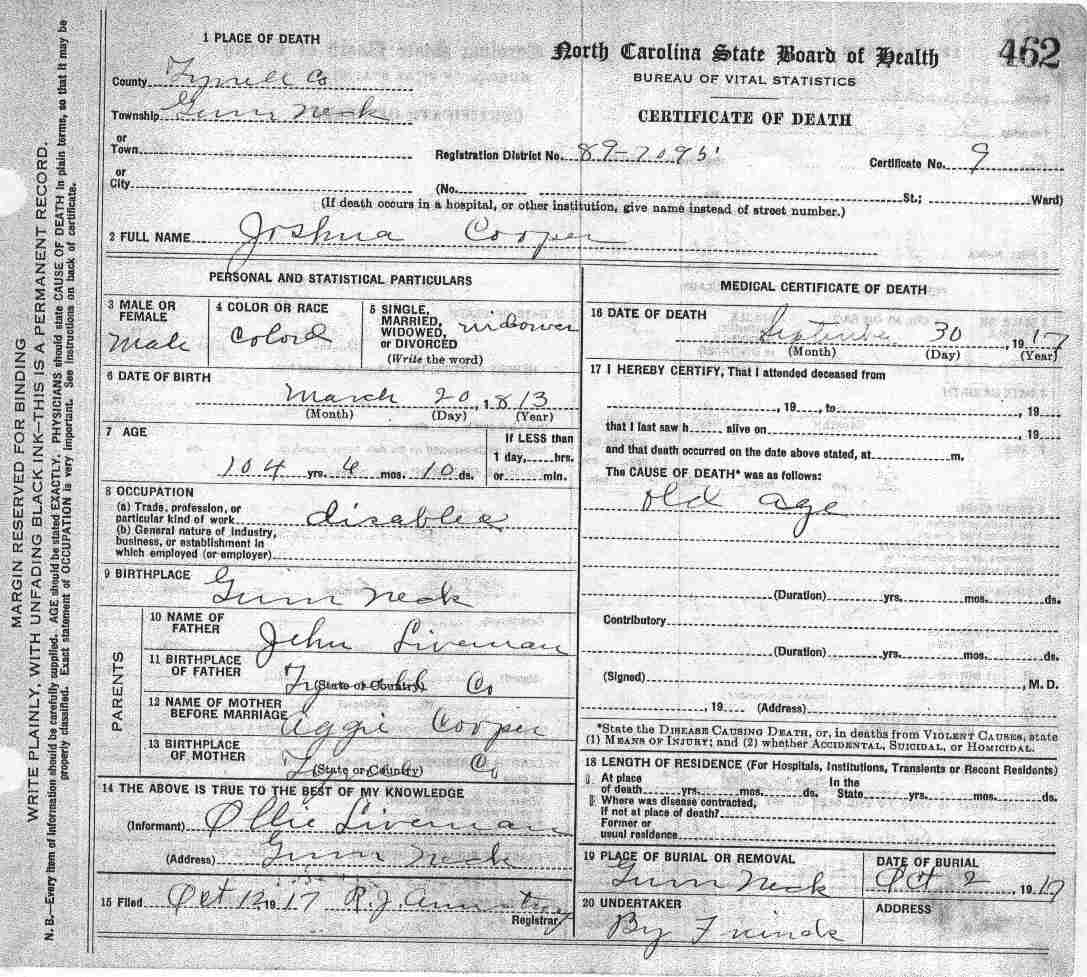 1 PLACE OF DEATH
North Carolina State Board of Health
462
BUREAU OF VITAL STATISTICS
CERTIFICATE OF DEATH
County Tyrrell Co
Township Gum Neck
or
Town
Registration District No. 89-7095
Certificate No. 9
or
City
(No. St.; Ward)
(If death occurs in a hospital, or other institution, give name instead of street number.)
2 FULL NAME Joshua Cooper
PERSONAL AND STATISTICAL PARTICULARS
3 MALE OR FEMALE
Male
4 COLOR OR RACE
Colord
5 SINGLE,
MARRIED,
WIDOWED,
or DIVORCED
(Write the word)
widower
6 DATE OF BIRTH
March 20, 1813
(Month) (Day) (Year)
7 AGE
104 yrs. 4 mos. 10 ds.
If LESS than
1 day, hrs.
or min.
8 OCCUPATION
(a) Trade, profession, or
particular kind of work disabled
(b) General nature of industry,
business, or establishment in
which employed (or employer)
9 BIRTHPLACE
Gum Neck
PARENTS
10 NAME OF
FATHER
John Liverman
11 BIRTHPLACE
OF FATHER
(State or Country)
Co
12 NAME OF MOTHER
BEFORE MARRIAGE
Aggie Cooper
13 BIRTHPLACE
OF MOTHER
(State or Country)
Co
14 THE ABOVE IS TRUE TO THE BEST OF MY KNOWLEDGE
(Informant) Ollie Liverman
(Address) Gum Neck
15 Filed Oct 12, 1917 R. J. Armstrong
Registrar
MEDICAL CERTIFICATE OF DEATH
16 DATE OF DEATH
September 30, 1917
(Month) (Day) (Year)
17 I HEREBY CERTIFY, That I attended deceased from
, 19 , to , 19
that I last saw h alive on , 19
and that death occurred on the date above stated, at m.
The CAUSE OF DEATH* was as follows:
old age
(Duration) yrs. mos. ds.
Contributory
(Duration) yrs. mos. ds.
(Signed) , M. D.
, 19 (Address)
*State the DISEASE CAUSING DEATH, or, in deaths from VIOLENT CAUSES, state
(1) MEANS OF INJURY; and (2) whether ACCIDENTAL, SUICIDAL, OR HOMICIDAL.
18 LENGTH OF RESIDENCE (For Hospitals, Institutions, Transients or Recent Residents)
At place
of death yrs. mos. ds.
In the
State yrs. mos. ds.
Where was disease contracted,
If not at place of death?
Former or
usual residence
19 PLACE OF BURIAL OR REMOVAL
Gum Neck
DATE OF BURIAL
Oct 2, 1917
20 UNDERTAKER
By Friends
ADDRESS
MARGIN RESERVED FOR BINDING
WRITE PLAINLY, WITH UNFADING BLACK INK—THIS IS A PERMANENT RECORD.
N. B.—Every item of information should be carefully supplied. AGE should be stated EXACTLY. PHYSICIANS should state CAUSE OF DEATH in plain terms, so that it may be
properly classified. Exact statement of OCCUPATION is very important. See instructions on back of certificate.